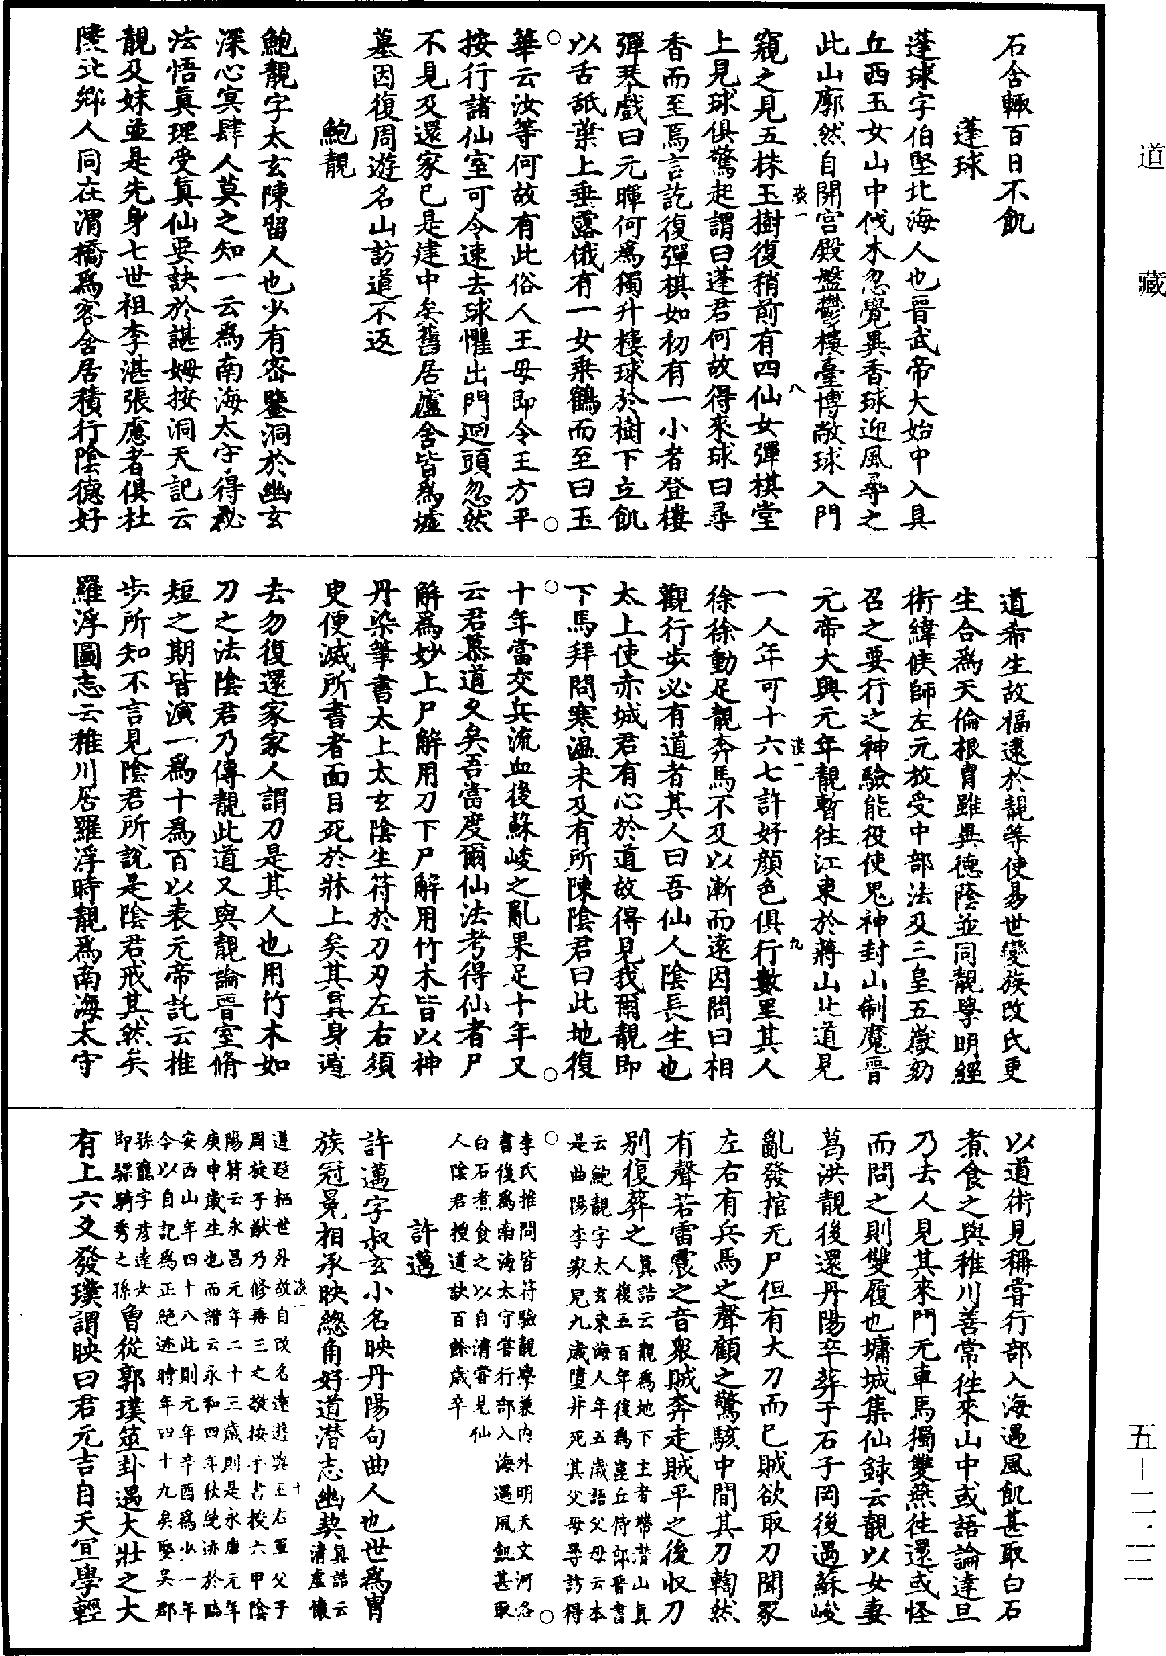 道藏
石舍輙百日不飢
蓬球
蓬球字伯堅北海人也晉武帝大始中入具
丘西玉女山中伐木忽覺異香球迎風尋之
此山廓然自開宮殿盤鬱樓臺博敞球入門
窺之見五株玉樹復稍前有四仙女彈棋堂
上見球俱驚起謂曰蓬君何故得來球曰尋
香而至焉言訖復彈棋如初有一小者登樓
彈琴戲曰元暉何爲獨升樓球於樹下立飢
以舌舐葉上垂露俄有一女乘鶴而至曰玉
華云汝等何故有此俗人王母即令王方平
按行諸仙室可令速去球懼出門迴頭忽然
不見及還家已是建中矣舊居廬舍皆爲墟
墓因復周遊名山訪道不返
鮑靚
鮑靚字太玄陳留人也少有密鑒洞於幽玄
深心冥肆人莫之知一云爲南海太守得秘
法悟眞理受眞仙要訣於諶姆按洞天記云
靚及妹並是先身七世祖李湛張慮者俱杜
陵北鄉人同在渭橋爲客舍居積行陰德好
道希生故福逮於靚等使易世變族改氏更
生合爲天倫根胄雖異德陰並同靚學明經
術緯候師左元放受中部法及三皇五嶽劾
召之要行之神驗能役使鬼神封山制魔晉
元帝大興元年靚暫往江東於蔣山北道見
一人年可十六七許好顏色俱行數里其人
徐徐動足靚奔馬不及以漸而遠因問曰相
觀行步必有道者其人曰吾仙人陰長生也
太上使赤城君有心於道故得見我爾靚即
下馬拜問寒溫未及有所陳陰君曰此地復
十年當交兵流血後蘇峻之亂果足十年又
云君慕道久矣吾當度爾仙法考得仙者尸
解爲妙上尸解用刀下尸解用竹木皆以神
丹染筆書太上太玄陰生符於刀刃左右須
臾便滅所書者面目死於牀上矣其眞身遁
去勿復還家家人謂刀是其人也用竹木如
刀之法陰君乃傳靚此道又與靚論晉室脩
短之期皆演一爲十爲百以表元帝託云推
步所知不言見陰君所說是陰君戒其然矣
羅浮圖志云稚川居羅浮時靚爲南海太守
以道術見稱嘗行部入海遇風飢甚取白石
煮食之與稚川善常往來山中或語論達旦
乃去人見其來門无車馬獨雙燕往還或怪
而問之則雙履也墉城集仙錄云靚以女妻
葛洪靚後還丹陽卒葬于石子岡後遇蘇峻
亂發棺无尸但有大刀而已賊欲取刀聞冢
左右有兵馬之聲顧之驚駭中間其刀輷然
有聲若雷震之音衆賊奔走賊平之後收刀
別復葬之眞誥云靚爲地下主者帶潛山眞
人復五百年後爲崑丘侍郎晉書
云鮑靚字太玄東海人年五歲語父母云本
是曲陽李家兒九歲墮井死其父母尋訪得
李氏推問皆符驗靚學兼內外明天文河洛
書後爲南海太守嘗行部入海遇風飢甚取
白石煮食之以自濟嘗見仙
人陰君授道訣百餘歲卒
許邁
許邁字叔玄小名映丹陽句曲人也世爲胄
族冠冕相承映總角好道潛志幽契眞誥云
清虛懷
道遐栖世外故自改名遠遊與王右軍父子
周旋子猷乃修再三之敬按手書授六甲陰
陽符云永昌元年二十三歲則是永康元年
庚申歲生也而譜云永和四年秋絶迹於臨
安西山年四十八此則元年辛酉爲少一年
今以自記爲正絶迹時年四十九矣娶吳郡
孫宏字彥達女
即驃騎秀之孫曾從郭璞筮卦遇大壯之大
有上六爻發璞謂映曰君元吉自天宜學輕
五—二二二